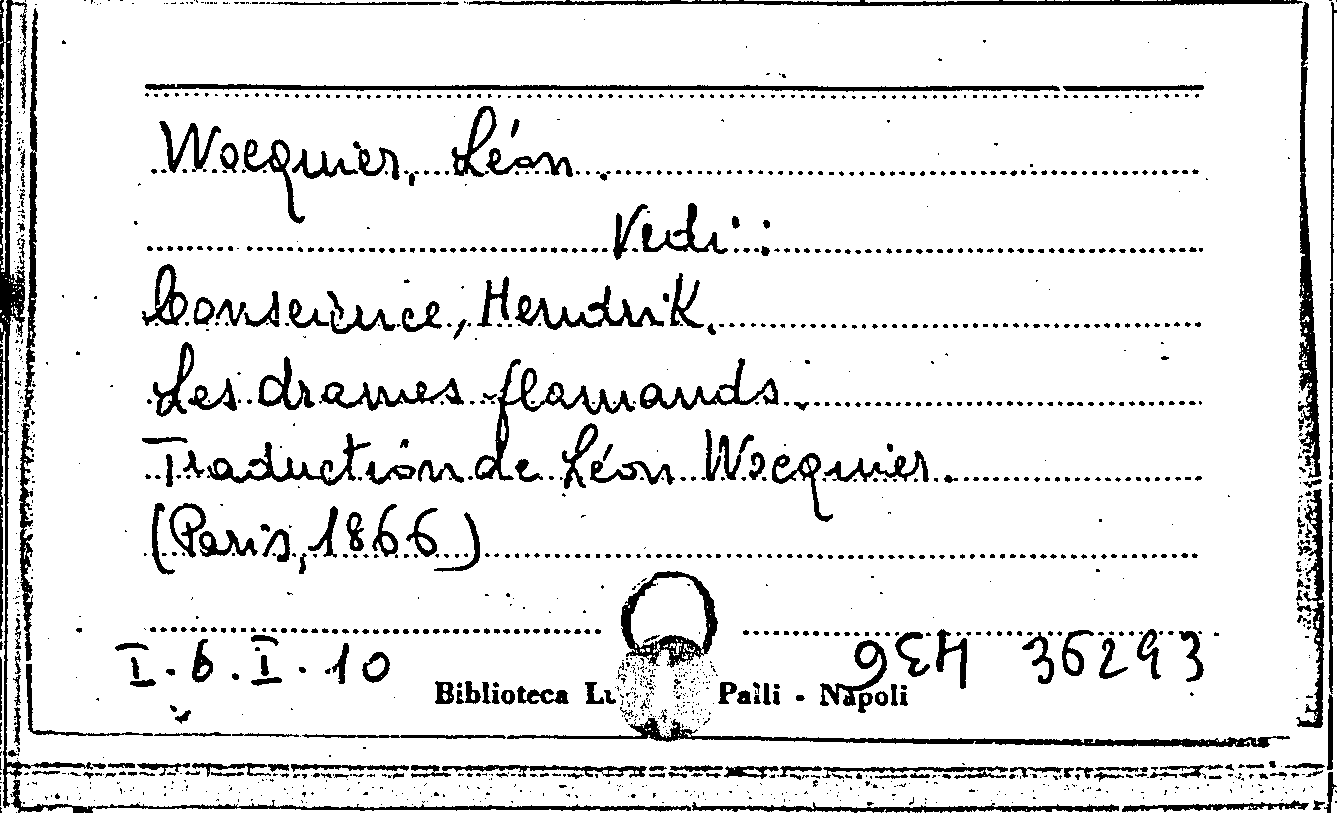 Wocquier, Léon.
Vedi:
Conscience, Hendrik.
Les drames flamands.
Traduction de Léon Wocquier.
(Paris, 1866)
I.6.I.10
Biblioteca Palli - Napoli
36293